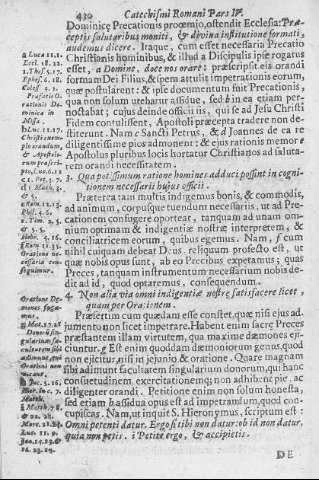 430 Catechismi Romani Pars IV.
Dominicæ Precationis proœmio, ostendit Ecclesia: Præ-
ceptis salutaribus moniti, & divina institutione formati,
audemus dicere. Itaque, cum esset necessaria Precatio
Christianis hominibus, & illud a Discipulis ipse rogatus
esset, a Domine, doce nos orare: præscripsit eis orandi
formam Dei Filius, & spem attulit impetrationis eorum,
quæ postularent: & ipse documentum fuit Precationis,
qua non solum utebatur assidue, sed b in ea etiam per-
noctabat; cujus deinde officii iis, qui se ad Jesu Christi
Fidem contulissent, Apostoli præcepta tradere non de-
stiterunt. Nam c Sancti Petrus, & d Joannes de ea re
diligentissime pios admonent: & ejus rationis memor e
Apostolus pluribus locis hortatur Christianos ad saluta-
rem orandi necessitatem.
3. Qua potissimum ratione homines adduci possint in cogni-
tionem necessarii hujus officii.
Præterea tam multis indigemus bonis, & commodis,
ad animum, corpusque tuendum necessariis, ut ad Pre-
cationem confugere oporteat, tanquam ad unam om-
nium optimam & indigentiæ nostræ interpretem, &
conciliatricem eorum, quibus egemus. Nam, f cum
nihil cuiquam debeat Deus, reliquum profecto est, ut
quæ nobis opus sunt, ab eo Precibus expetamus; quas
Preces, tanquam instrumentum necessarium nobis de-
dit ad id, quod optaremus, consequendum.
4. Non alia via omni indigentiæ nostræ satisfacere licet,
quam per Orationem.
Præsertim cum quædam esse constet, quæ nisi ejus ad-
jumento non licet impetrare. Habent enim sacræ Preces
præstantem illam virtutem, qua maxime dæmones eji-
ciuntur. g Est enim quoddam dæmoniorum genus, quod
non ejicitur, nisi in jejunio & oratione. Quare magnam
sibi adimunt facultatem singularium donorum, qui hanc
consuetudinem, exercitationemq; non adhibent pie, ac
diligenter orandi. Petitione enim non solum honesta,
sed etiam h assidua opus est ad impetrandum, quod con-
cupiscas. Nam, ut inquit S. Hieronymus, scriptum est:
Omni petenti datur. Ergo si tibi non datur: ob id non datur,
quia non petis. i Petite ergo, & accipietis.
DE
a Luca 11.1.
Eccl. 18.22.
1. Thess. 5.17.
Ephes. 6.18.
Coloss. 4.2.
b Luc. 11.17.
Oratio Do-
mines fuga-
g Mat. 17.21